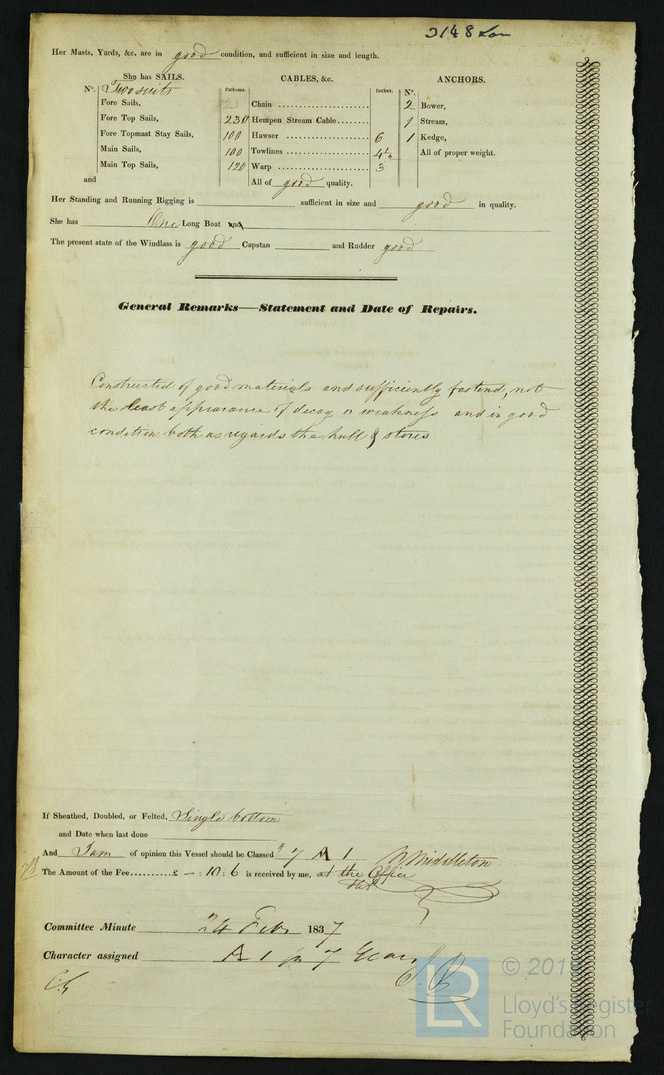 2148 Lon
Her Masts, Yards, &c. are in good condition, and sufficient in size and length.
She has SAILS. CABLES, &c. ANCHORS.
N°. Two suits Fathoms. Inches. N°.
Fore Sails, Chain 2 Bower,
Fore Top Sails, 230 Hempen Stream Cable........ 1 Stream,
Fore Topmast Stay Sails, 100 Hawser 6 1 Kedge,
Main Sails, 100 Towlines 4½ All of proper weight.
Main Top Sails, 120 Warp 3
and All of good quality.
Her Standing and Running Rigging is sufficient in size and good in quality.
She has One Long Boat and
The present state of the Windlass is good Capstan and Rudder good
General Remarks—Statement and Date of Repairs.
Constructed of good materials and sufficiently fastend, not
the least appearance of decay or weakness and in good
condition both as regards the hull & stores
If Sheathed, Doubled, or Felted, Single bottom
and Date when last done
And I am of opinion this Vessel should be Classed 7 A 1 Middleton
The Amount of the Fee..........£ — : 10 : 6 is received by me, at the Office
Committee Minute 24 Feb 1837
Character assigned A 1 for 7 Years
LR
© 201
Lloyd's Register
Foundation